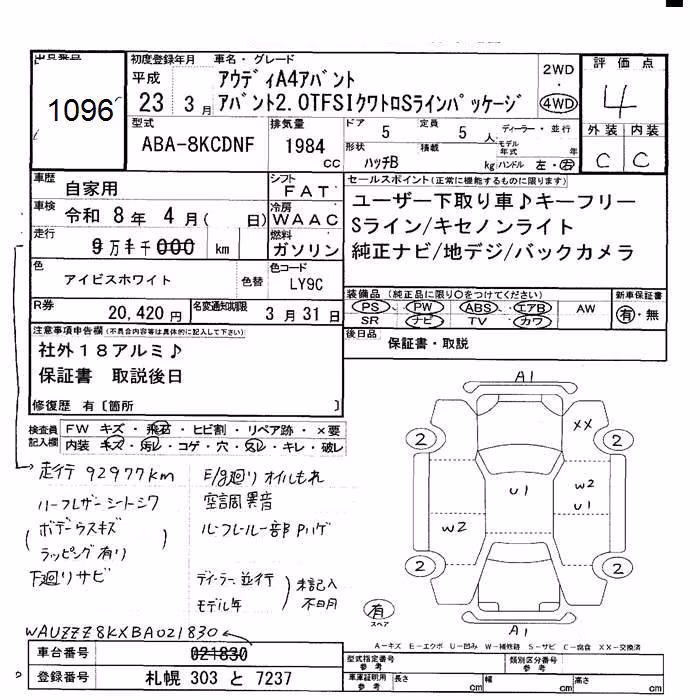 出品番号
1096
初度登録年月 車名・グレード
平成 アウディA4アバント
23 3月 アバント2.0TFSIクワトロSラインパッケージ
2WD
・
4WD
評価点
4
外装 内装
C C
型式 排気量 ドア 5 定員 5 人 ディーラー・並行
ABA-8KCDNF 1984 cc
形状 ハッチB 積載 kg モデル年式 年
ハンドル 左・右
車歴 自家用
シフト FAT
車検 令和 8年 4月( 日)
冷房 WAAC
走行 9万千000 km
燃料 ガソリン
色 アイビスホワイト 色替
色コード LY9C
R券 20,420円 名変通知期限 3月31日
セールスポイント(正常に機能するものに限ります)
ユーザー下取り車♪キーフリー
Sライン/キセノンライト
純正ナビ/地デジ/バックカメラ
装備品(純正品に限り○をつけてください)
PS、 PW ABS、 エアB AW
SR ナビ TV カワ
新車保証書
有・無
後日品 保証書・取説
注意事項申告欄(不具合内容等は具体的に記入して下さい)
社外18アルミ♪
保証書 取説後日
修復歴 有〔箇所 〕
検査員記入欄
FW キズ・飛石・ヒビ割・リペア跡・×要
内装 キズ・汚レ・コゲ・穴・スレ・キレ・破レ
走行 92977km
ハーフレザーシートシワ
ボデーウスキズ
ラッピング有り
下廻りサビ
E/g廻りオイルもれ
空調異音
ルーフレール一部Pハゲ
ディーラー、並行
モデル年
未記入
不日月
A1
2
2
XX
W2
U1
U1
W2
2
2
有
スペア
A1
A-キズ E-エクボ U-凹み W-補修跡 S-サビ C-腐食 XX-交換済
WAUZZZ8KXBA021830
車台番号 021830
登録番号 札幌 303 と 7237
型式指定番号 参考
類別区分番号 参考
車庫証明用 参考 長さ cm 幅 cm 高さ cm